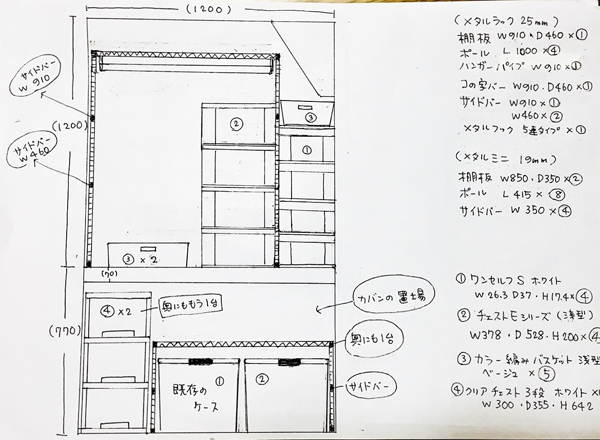 (1200)
サイドバー
W 910
(1200)
サイドバー
W460
②
③
①
③ × 2
(70)
(770)
④ × 2
奥にももう1台
カバンの置場
奥にも1台
サイドバー
既存の
ケース
①
②
(メタルラック 25mm)
棚板 W910 × D460 × ①
ポール L 1000 × ④
ハンガーパイプ W910 × ①
コの字バー W910・D460 × ①
サイドバー W910 × ①
W460 × ②
メタルフック 5連タイプ × ①
(メタルミニ 19mm)
棚板 W850・D350 × ②
ポール L415 × ⑧
サイドバー W 350 × ④
① ワンセルフ S ホワイト
W 26.3 D37・H17.4 × ④
② チェストEシリーズ (浅型)
W378・D 528・H 200 × ④
③ カラー編みバスケット 浅型
ベージュ × ⑤
④ クリアチェスト 3段 ホワイト ×
W 300・D355・H 642